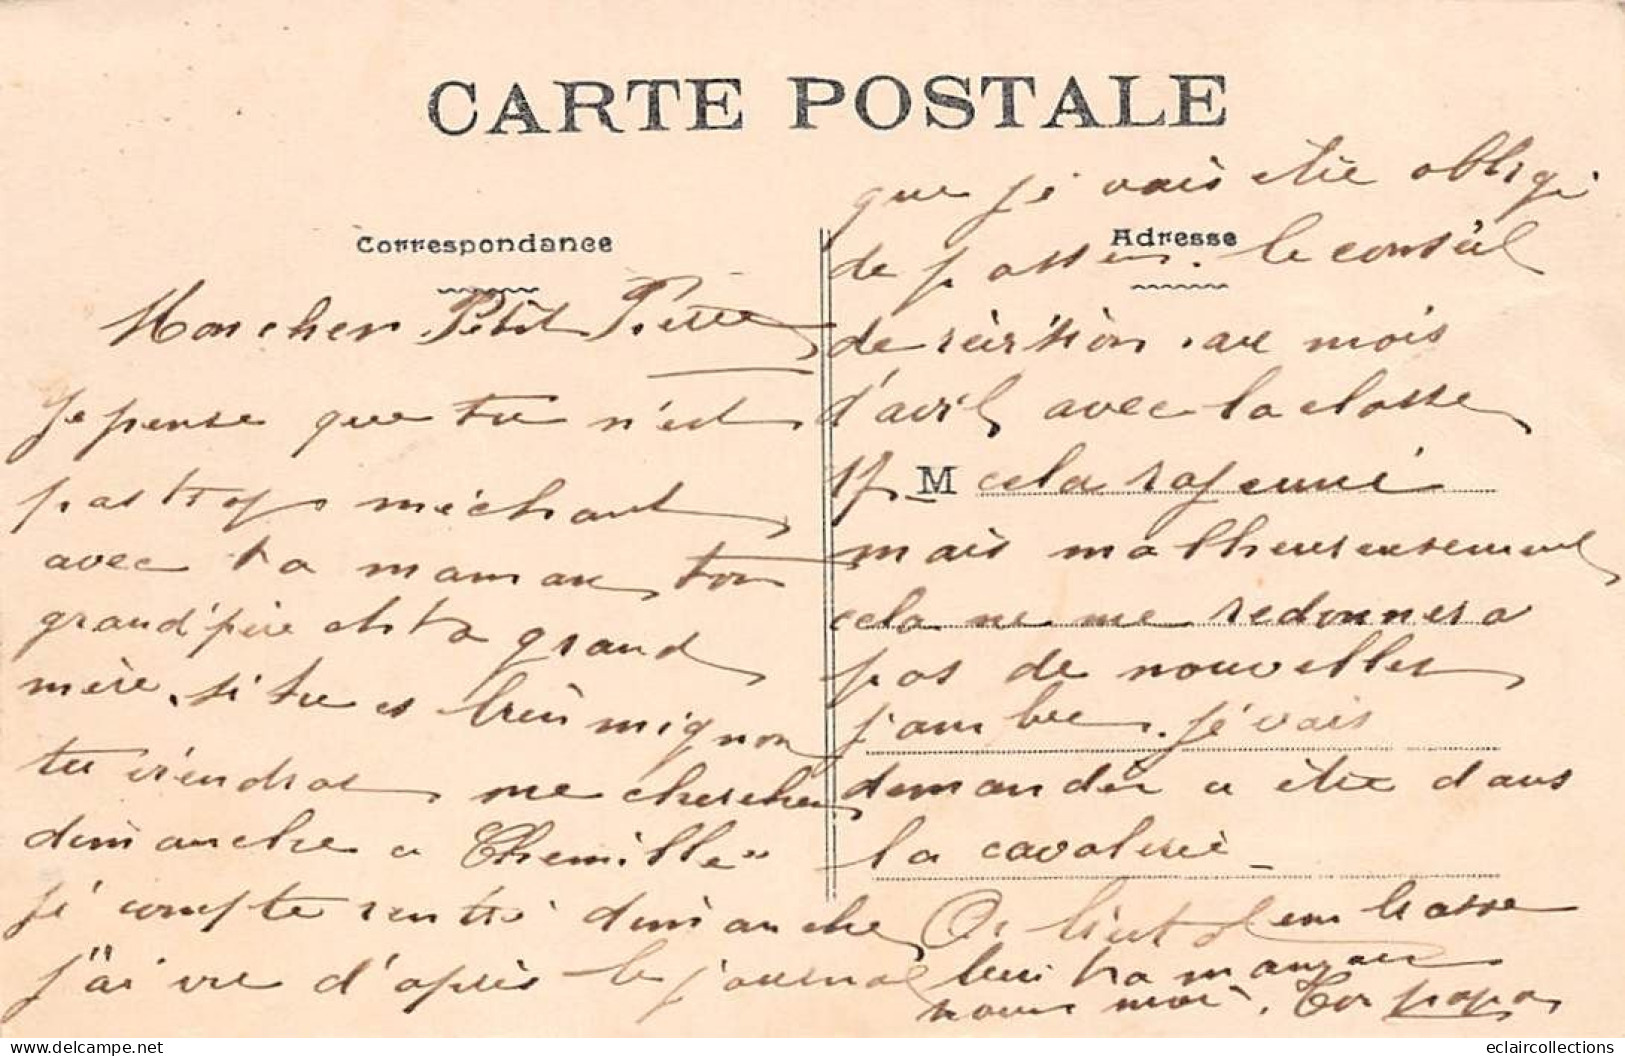 CARTE POSTALE
Correspondance
Mon cher Petit Pierre
je pense que tu n'est
pas trop méchant
avec ta maman ton
grand'père et ta grand
mère, si tu es bien mignon
tu viendras me chercher
dimanche a Chemillé"
je compte rentré dimanche
j'ai vu d'après le journal
Adresse
que je vais être obligé
de passer le conseil
de révision au mois
d'avril avec la classe
17 M cela rajeuni
mais malheureusement
cela ne me redonnera
pas de nouvelles
jambes. je vais
demander a être dans
la cavalerie_
bientôt embrasse
bien ta maman
pour moi. Ton papa
eclaircollections